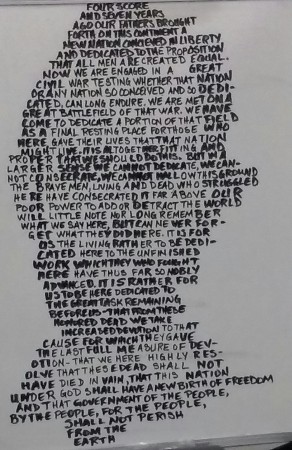 FOUR SCORE
AND SEVEN YEARS
AGO OUR FATHERS BROUGHT
FORTH ON THIS CONTINENT A
NEW NATION CONCEIVED IN LIBERTY
AND DEDICATED TO THE PROPOSITION
THAT ALL MEN ARE CREATED EQUAL.
NOW WE ARE ENGAGED IN A GREAT
CIVIL WAR TESTING WHETHER THAT NATION
OR ANY NATION SO CONCEIVED AND SO DEDI-
CATED, CAN LONG ENDURE. WE ARE MET ON A
GREAT BATTLEFIELD OF THAT WAR. WE HAVE
COME TO DEDICATE A PORTION OF THAT FIELD
AS A FINAL RESTING PLACE FOR THOSE WHO
HERE GAVE THEIR LIVES THAT THAT NATION
MIGHT LIVE. IT IS ALTOGETHER FITTING AND
PROPER THAT WE SHOULD DO THIS. BUT IN A
LARGER SENSE WE CANNOT DEDICATE, WE CAN-
NOT CONSECRATE, WE CANNOT HALLOW THIS GROUND
THE BRAVE MEN, LIVING AND DEAD WHO STRUGGLED
HERE HAVE CONSECRATED IT FAR ABOVE OUR
POOR POWER TO ADD OR DETRACT THE WORLD
WILL LITTLE NOTE NOR LONG REMEMBER
WHAT WE SAY HERE, BUT CAN NEVER FOR-
GET WHAT THEY DID HERE. IT IS FOR
US THE LIVING RATHER TO BE DEDI-
CATED HERE TO THE UNFINISHED
WORK WHICH THEY WHO FOUGHT
HERE HAVE THUS FAR SO NOBLY
ADVANCED. IT IS RATHER FOR
US TO BE HERE DEDICATED TO
THE GREAT TASK REMAINING
BEFORE US-THAT FROM THESE
HONORED DEAD WE TAKE
INCREASED DEVOTION TO THAT
CAUSE FOR WHICH THEY GAVE
THE LAST FULL MEASURE OF DEV-
OTION-THAT WE HERE HIGHLY RES-
OLVE THAT THESE DEAD SHALL NOT
HAVE DIED IN VAIN, THAT THIS NATION
UNDER GOD SHALL HAVE A NEW BIRTH OF FREEDOM
AND THAT GOVERNMENT OF THE PEOPLE,
BY THE PEOPLE, FOR THE PEOPLE,
SHALL NOT PERISH
FROM THE
EARTH